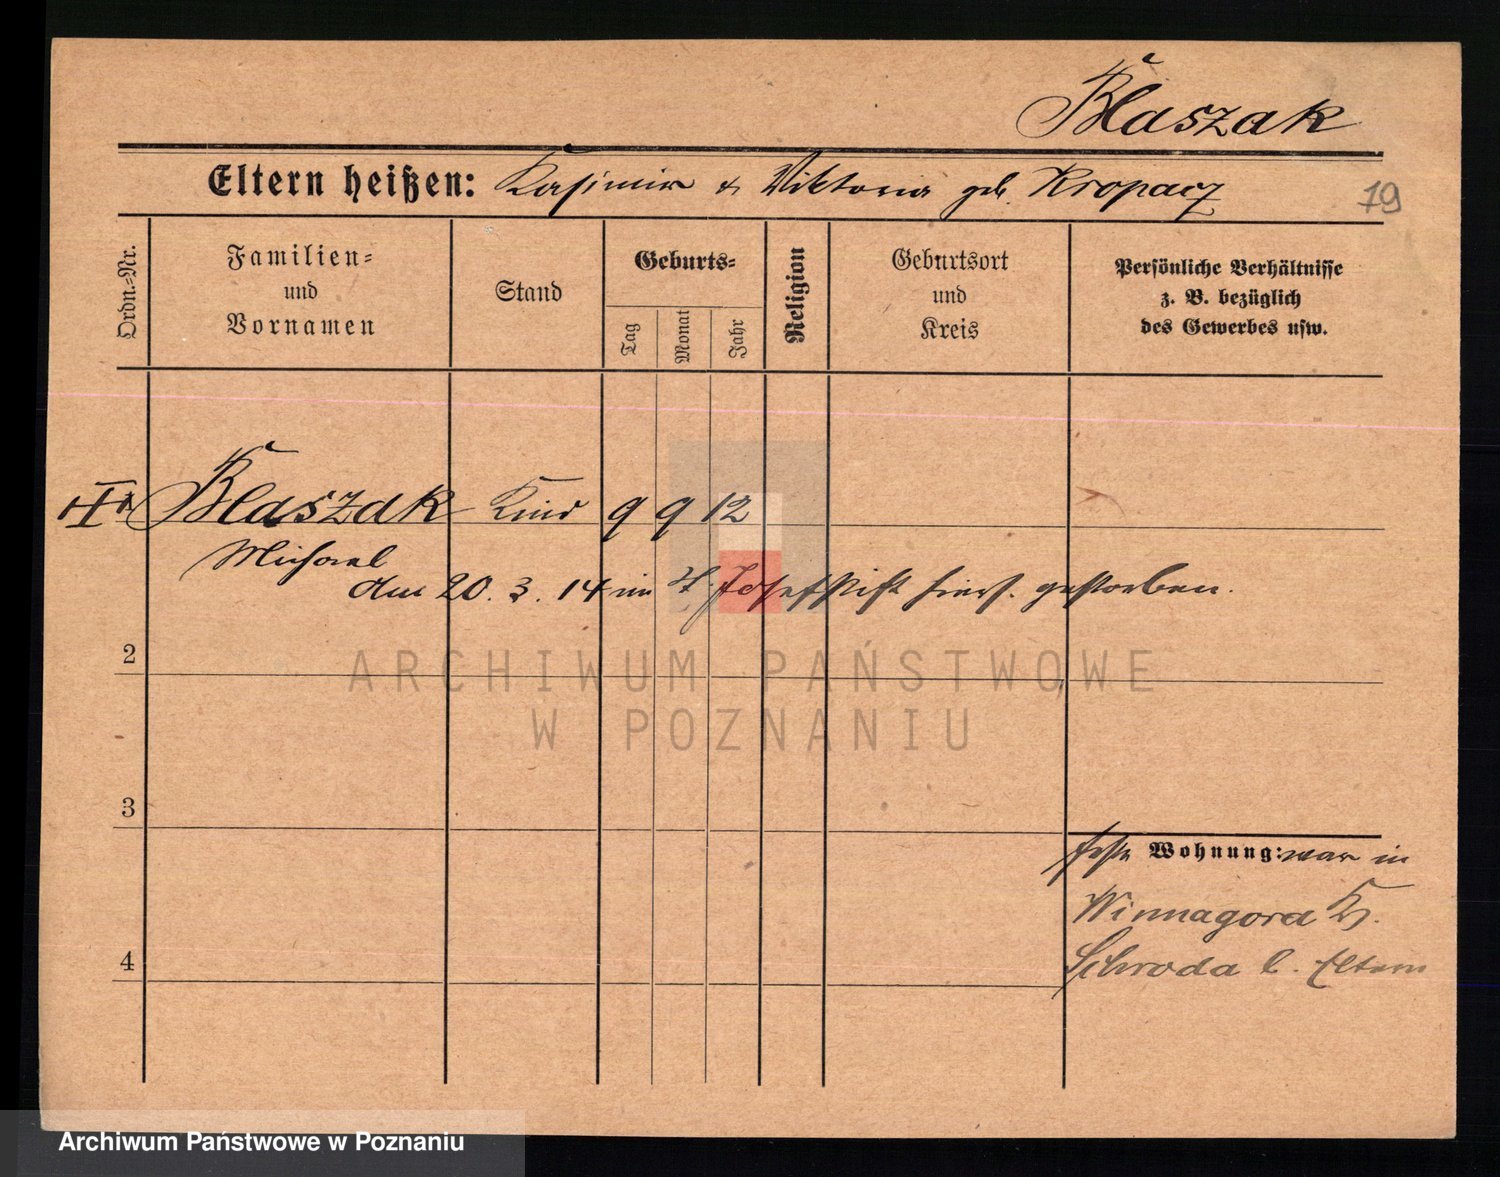 Blaszak
Eltern heißen: Kasimir & Viktoria geb. Kropacz
19
Ordn.-Nr.
Familien-
und
Vornamen
Stand
Geburts-
Tag
Monat
Jahr
Religion
Geburtsort
und
Kreis
Persönliche Verhältnisse
z. B. bezüglich
des Gewerbes usw.
Blaszak Kind 9 9 12
Michael
am 20. 3. 14 im St. Josefstift hiers. gestorben.
2
ARCHIWUM PAŃSTWOWE
W POZNANIU
3
feste Wohnung: war in
Winnagora Kr.
4
Schroda b. Eltern
Archiwum Państwowe w Poznaniu